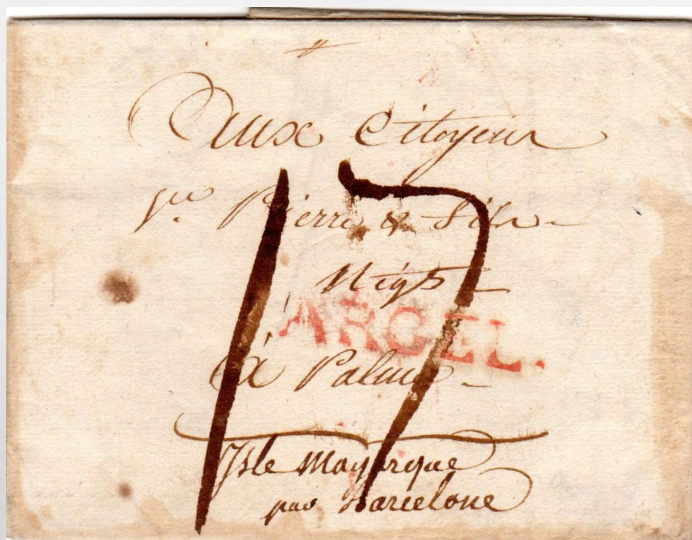 Aux Citoyens
Pre Pierre & fils
Négts
ARGEL.
à Palma
17
Isle Mayorque
par Barcelone